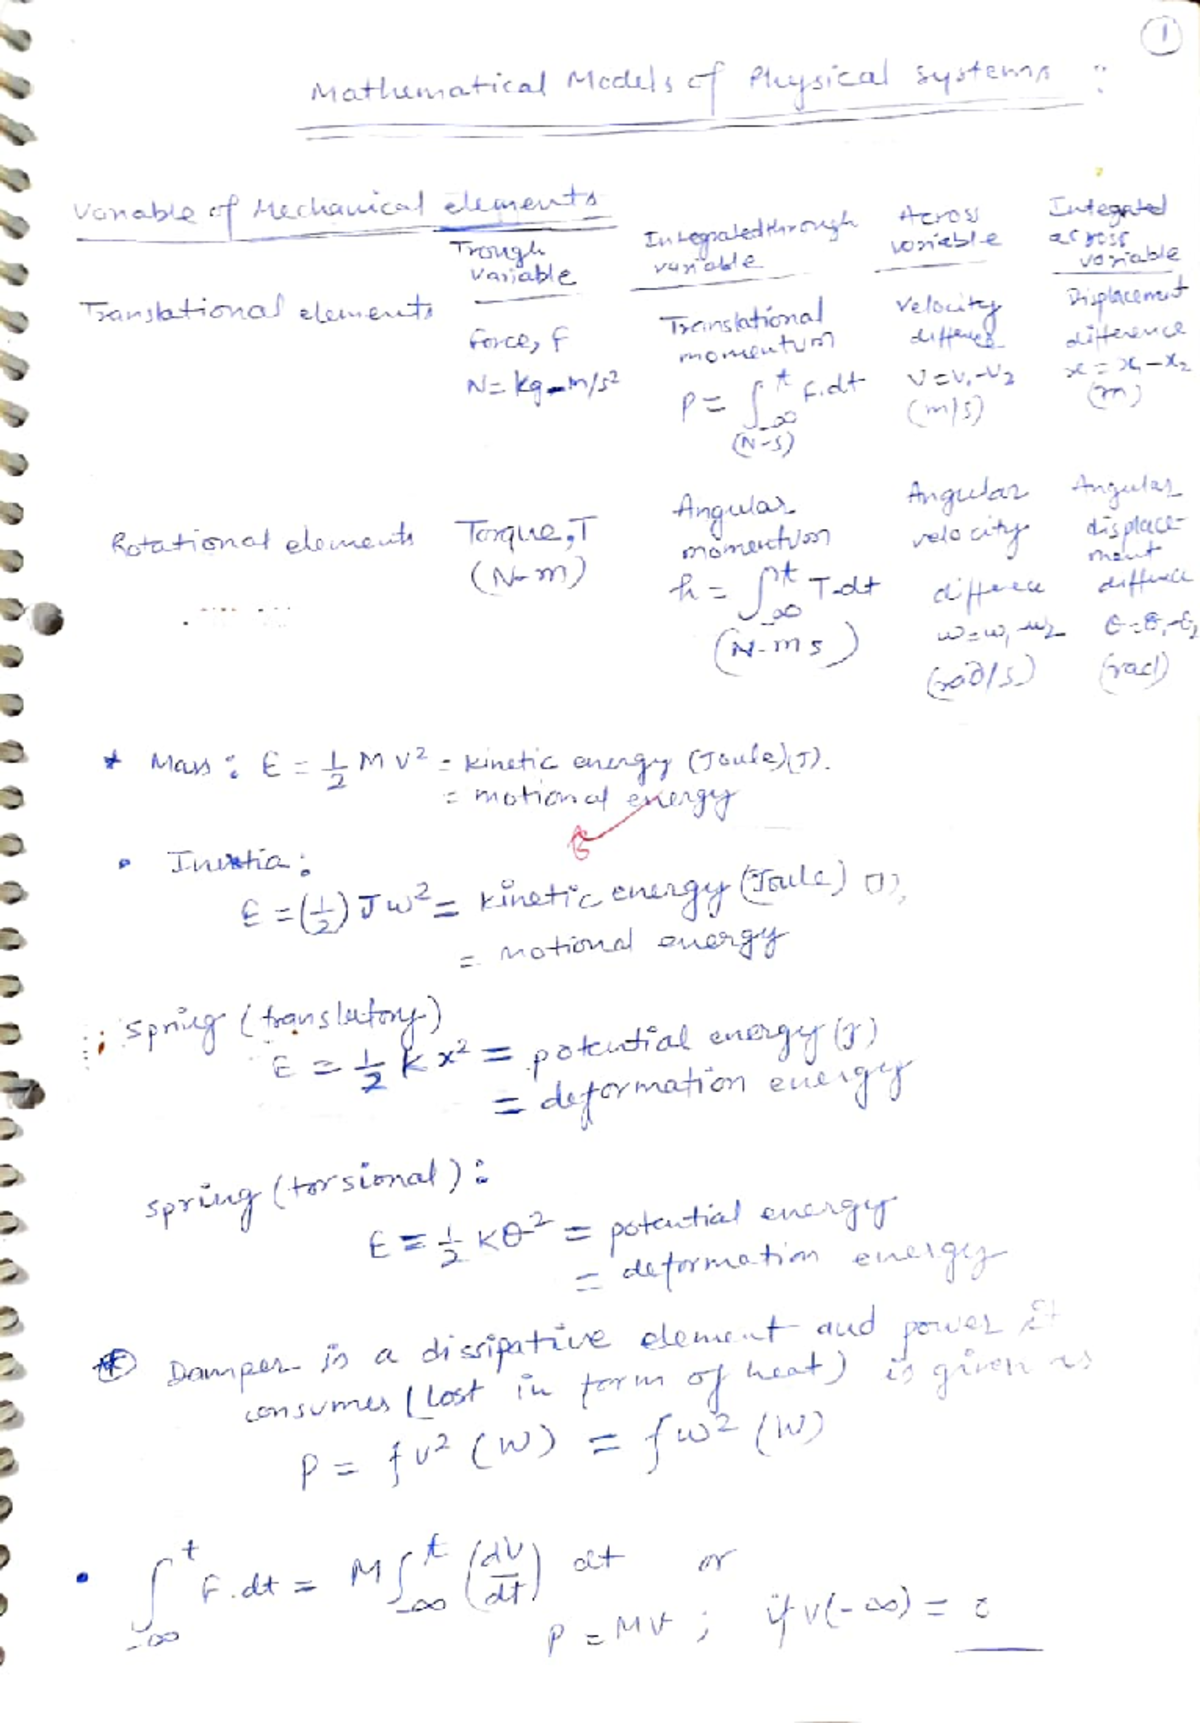 1
Mathematical Models of Physical systems :
Variable of Mechanical elements
Trough variable
Integrated through variable
Across variable
Integrated across variable
Translational elements
Force, F
N = kg-m/s²
Translational momentum
P = ∫_{-∞}^{t} F.dt
(N-s)
Velocity difference
V = V₁-V₂
(m/s)
Displacement difference
x = x₁-x₂
(m)
Rotational elements
Torque, T
(N-m)
Angular momentum
h = ∫_{-∞}^{t} T.dt
(N-ms)
Angular velocity difference
ω = ω₁-ω₂
(rad/s)
Angular displacement difference
θ = θ₁-θ₂
(rad)
* Mass : E = ½ M V² = kinetic energy (Joule)(J).
= motional energy
• Inertia :
E = (½) J ω² = kinetic energy (Joule) (J),
= motional energy
: spring (translatory)
E = ½ k x² = potential energy (J)
= deformation energy
spring (torsional) :
E = ½ k θ² = potential energy
= deformation energy
* Damper is a dissipative element and power it
consumes (Lost in form of heat) is given as
P = f v² (W) = f ω² (W)
• ∫_{-∞}^{t} F.dt = M ∫_{-∞}^{t} (dV/dt) dt or
P = MV ; if V(-∞) = 0